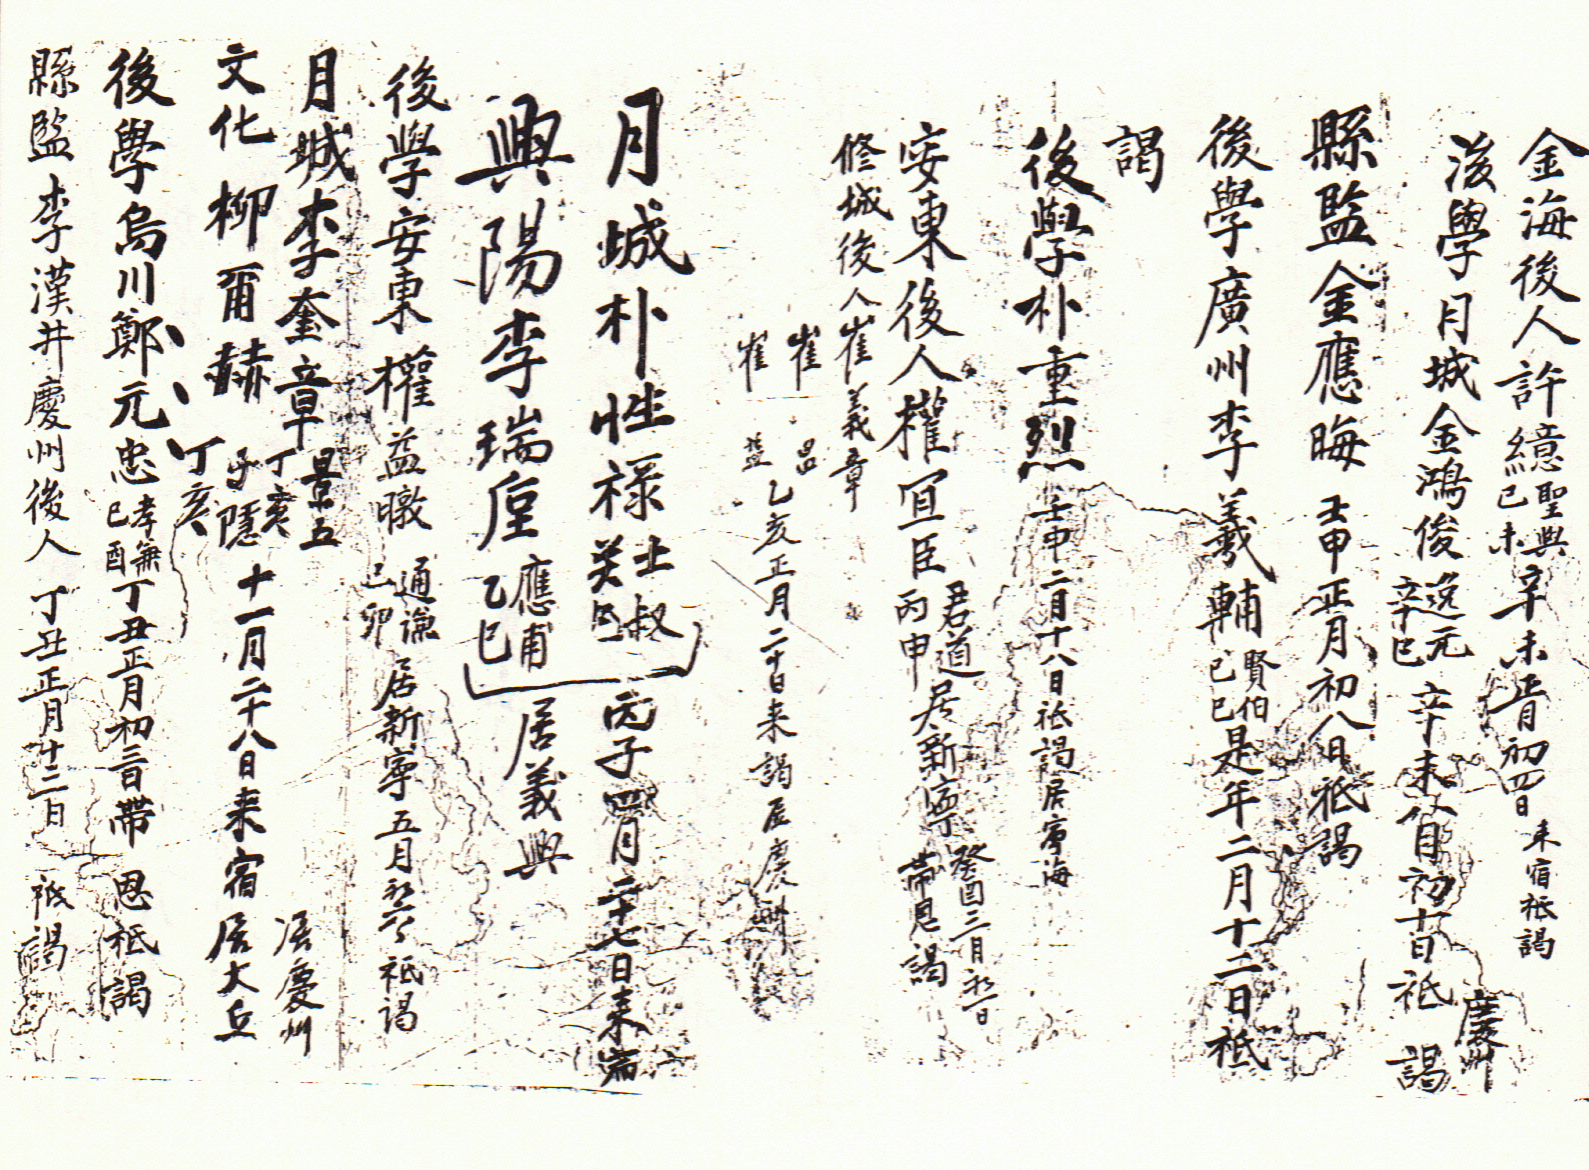 金海後人許繶聖興己未辛未正月初四日来宿祗謁
後學月城金鴻俊逸元辛巳辛未八月初十日祗謁慶州
縣監金應晦壬申正月初八日祗謁
後學廣州李義輔賢伯己巳是年二月十二日祗
謁
後學朴重烈壬申二月十八日祗謁居寧海
安東後人權宜臣君道丙申居新寧癸酉三月初一日帶恩謁
修城後人崔義章
崔昌
崔益乙亥正月二十日来謁居慶州
月城朴性祿士叔癸丙子四月二十七日来宿
興陽李瑞應甫乙巳居義興
後學安東權益暾通謙己卯居新寧五月初六日祗謁
月城李奎章景五丁亥居慶州
文化柳爾赫子隱丁亥十一月二十八日来宿居大丘
後學烏川鄭元忠孝無己酉丁丑正月初三日帶恩祗謁
縣監李漢井慶州後人丁丑正月十二日祗謁